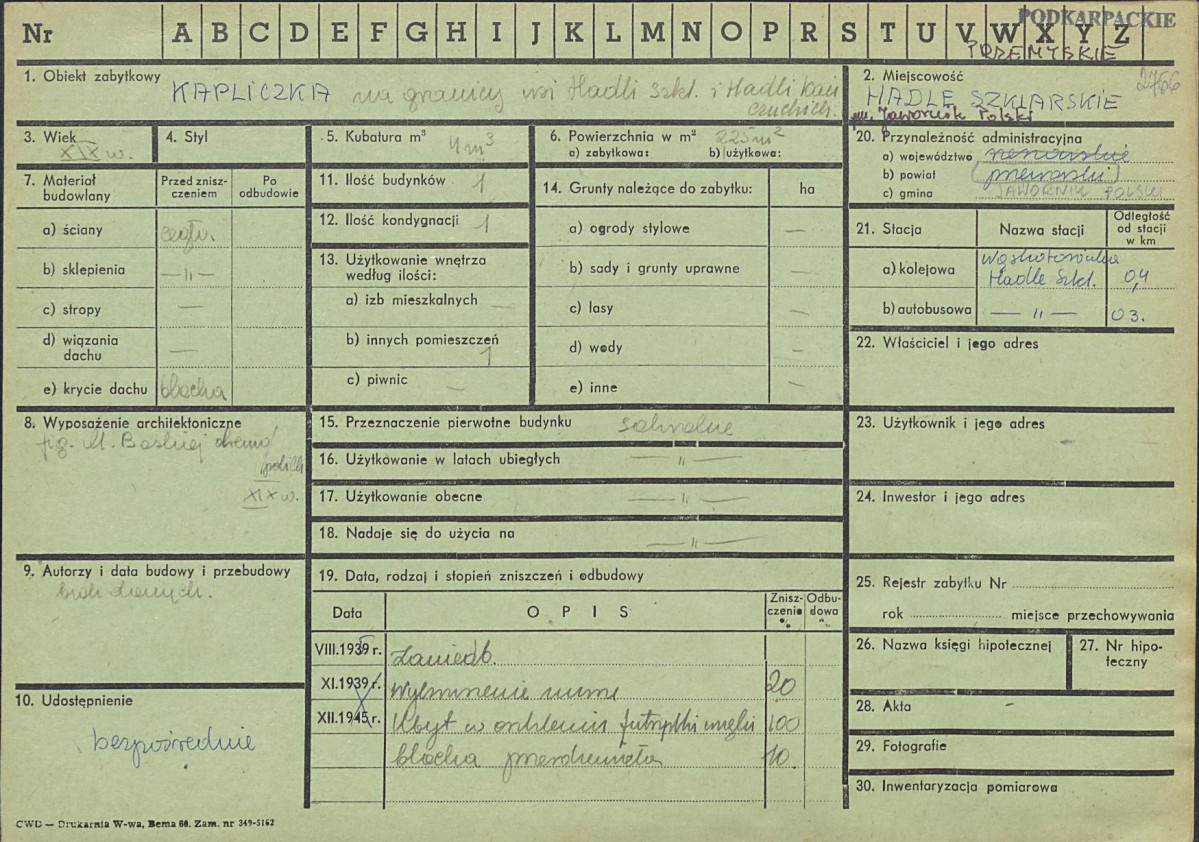 Nr A B C D E F G H I J K L M N O P R S T U V W X Y Z
PODKARPACKIE
PRZEMYSKIE
1. Obiekt zabytkowy
KAPLICZKA na granicy wsi Hadli Szkl. i Hadli Kań
czudzk.
2. Miejscowość
2766
HADLE SZKLARSKIE
gm. Jawornik Polski
3. Wiek
XIX w.
4. Styl
5. Kubatura m³
4 m³
6. Powierzchnia w m²
225 m²
a) zabytkowa: b) użytkowa:
20. Przynależność administracyjna
a) województwo rzeszowskie
b) powiat (przeworski)
c) gmina JAWORNIK POLSKI
7. Materiał budowlany
Przed znisz-
czeniem
Po
odbudowie
a) ściany cegła
b) sklepienia — " —
c) stropy —
d) wiązania
dachu —
e) krycie dachu blacha
11. Ilość budynków 1
12. Ilość kondygnacji 1
13. Użytkowanie wnętrza
według ilości:
a) izb mieszkalnych —
b) innych pomieszczeń
1
c) piwnic —
14. Grunty należące do zabytku: ha
a) ogrody stylowe —
b) sady i grunty uprawne —
c) lasy —
d) wody —
e) inne —
21. Stacja
Nazwa stacji
Odległość
od stacji
w km
a) kolejowa
Hadle Szkl. 0,4
b) autobusowa — " — 03.
22. Właściciel i jego adres
8. Wyposażenie architektoniczne
fig. M. Boskiej
XIX w.
15. Przeznaczenie pierwotne budynku sakralne
16. Użytkowanie w latach ubiegłych — " —
17. Użytkowanie obecne — " —
18. Nadaje się do użycia na — " —
23. Użytkownik i jego adres
24. Inwestor i jego adres
9. Autorzy i data budowy i przebudowy
brak danych.
19. Data, rodzaj i stopień zniszczeń i odbudowy
Data
O P I S
Znisz-
czenie
%
Odbu-
dowa
%
VIII.1939 r. Zaniedb.
XI.1939 r. 20
XII.1945 r. Ubyt w 100
blacha przerdzewiała 10
10. Udostępnienie
bezpośrednie
25. Rejestr zabytku Nr
rok miejsce przechowywania
26. Nazwa księgi hipotecznej
27. Nr hipo-
teczny
28. Akta -
29. Fotografie
30. Inwentaryzacja pomiarowa
CWD — Drukarnia W-wa, Bema 60. Zam. nr 349-5162